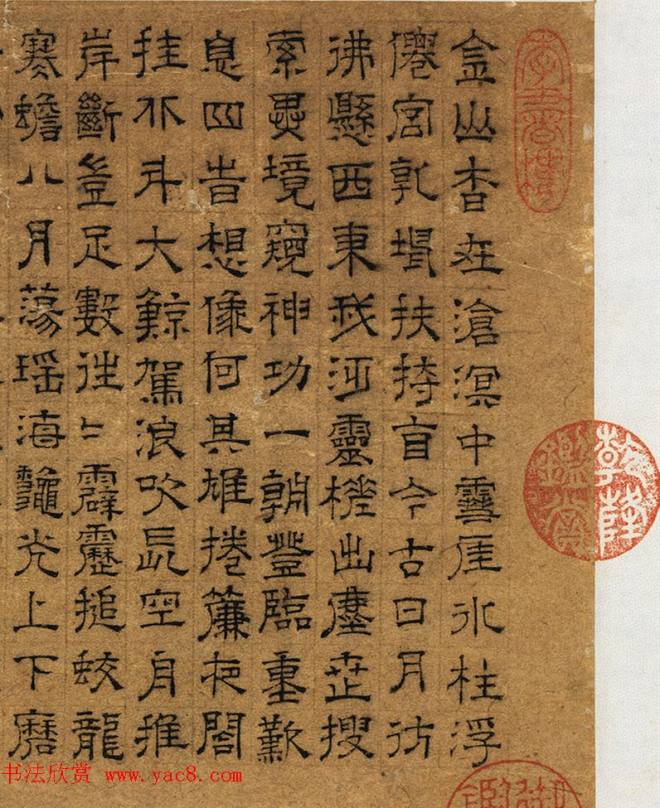 金山杳在滄溟中雪厓冰柱浮
僊宮乾坤扶持自今古日月彷
彿懸西東我泛靈槎出塵世搜
索異境窺神功一朝登臨重歎
息四時想像何其雄捲簾夜閣
挂北斗大鯨駕浪吹長空舟摧
岸斷豈足數往〻霹靂搥蛟龍
寒蟾八月蕩瑤海龝光上下磨
乾隆鑑賞
书法欣赏 www.yac8.com